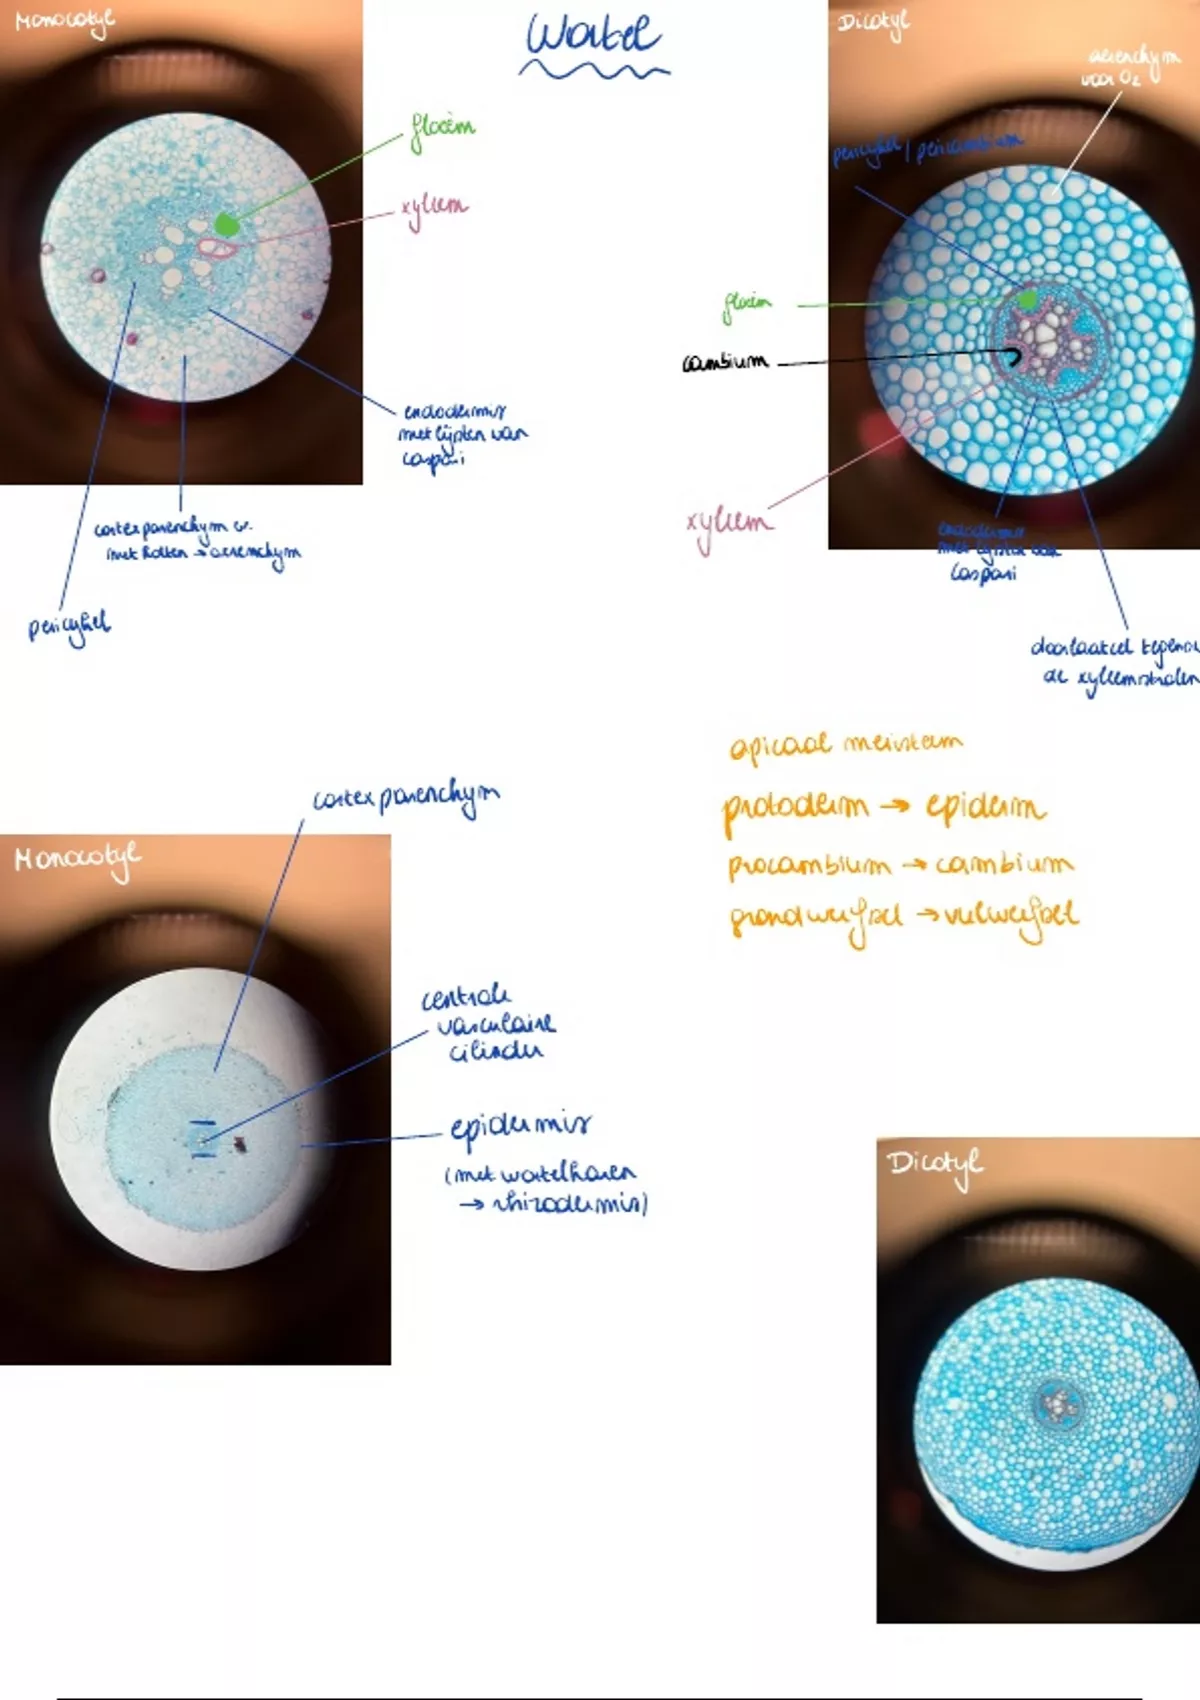 Wortel
Monocotyl
floëem
xyleem
endodermis
met lijsten van
caspari
cortexparenchym
(met holten → aerenchym
pericykel
Dicotyl
aerenchym
voor O₂
pericykel / pericambium
floëem
cambium
xyleem
endodermis
met lijsten van
Caspari
doorlaatcel tegenov
de xyleemstralen
apicaal meristeem
protoderm → epiderm
procambium → cambium
grondweefsel → vulweefsel
Monocotyl
cortexparenchym
centrale
vasculaire
cilinder
epidermis
(met wortelharen
→ rhizodermis)
Dicotyl